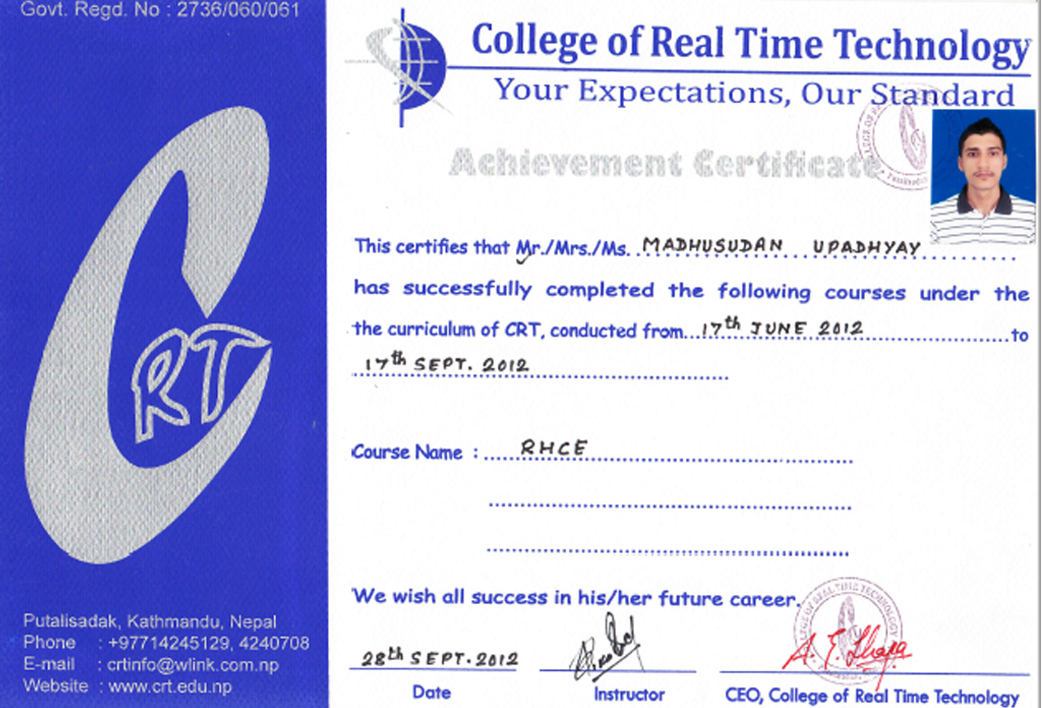 Govt. Regd. No : 2736/060/061
CRT
Putalisadak, Kathmandu, Nepal
Phone : +97714245129, 4240708
E-mail : crtinfo@wlink.com.np
Website : www.crt.edu.np
College of Real Time Technology
Your Expectations, Our Standard
Achievement Certificate
This certifies that Mr./Mrs./Ms. MADHUSUDAN UPADHYAY
has successfully completed the following courses under the
the curriculum of CRT, conducted from 17th JUNE 2012 to
17th SEPT. 2012
Course Name : RHCE
We wish all success in his/her future career.
COLLEGE OF REAL TIME TECHNOLOGY
28th SEPT. 2012
Date
Instructor
CEO, College of Real Time Technology